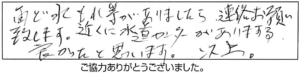 向ど水もれ等がありましたら連絡お願い
致します。近くに水道センターがありまするで
良かったと思います。以上。
ご協力ありがとうございました。